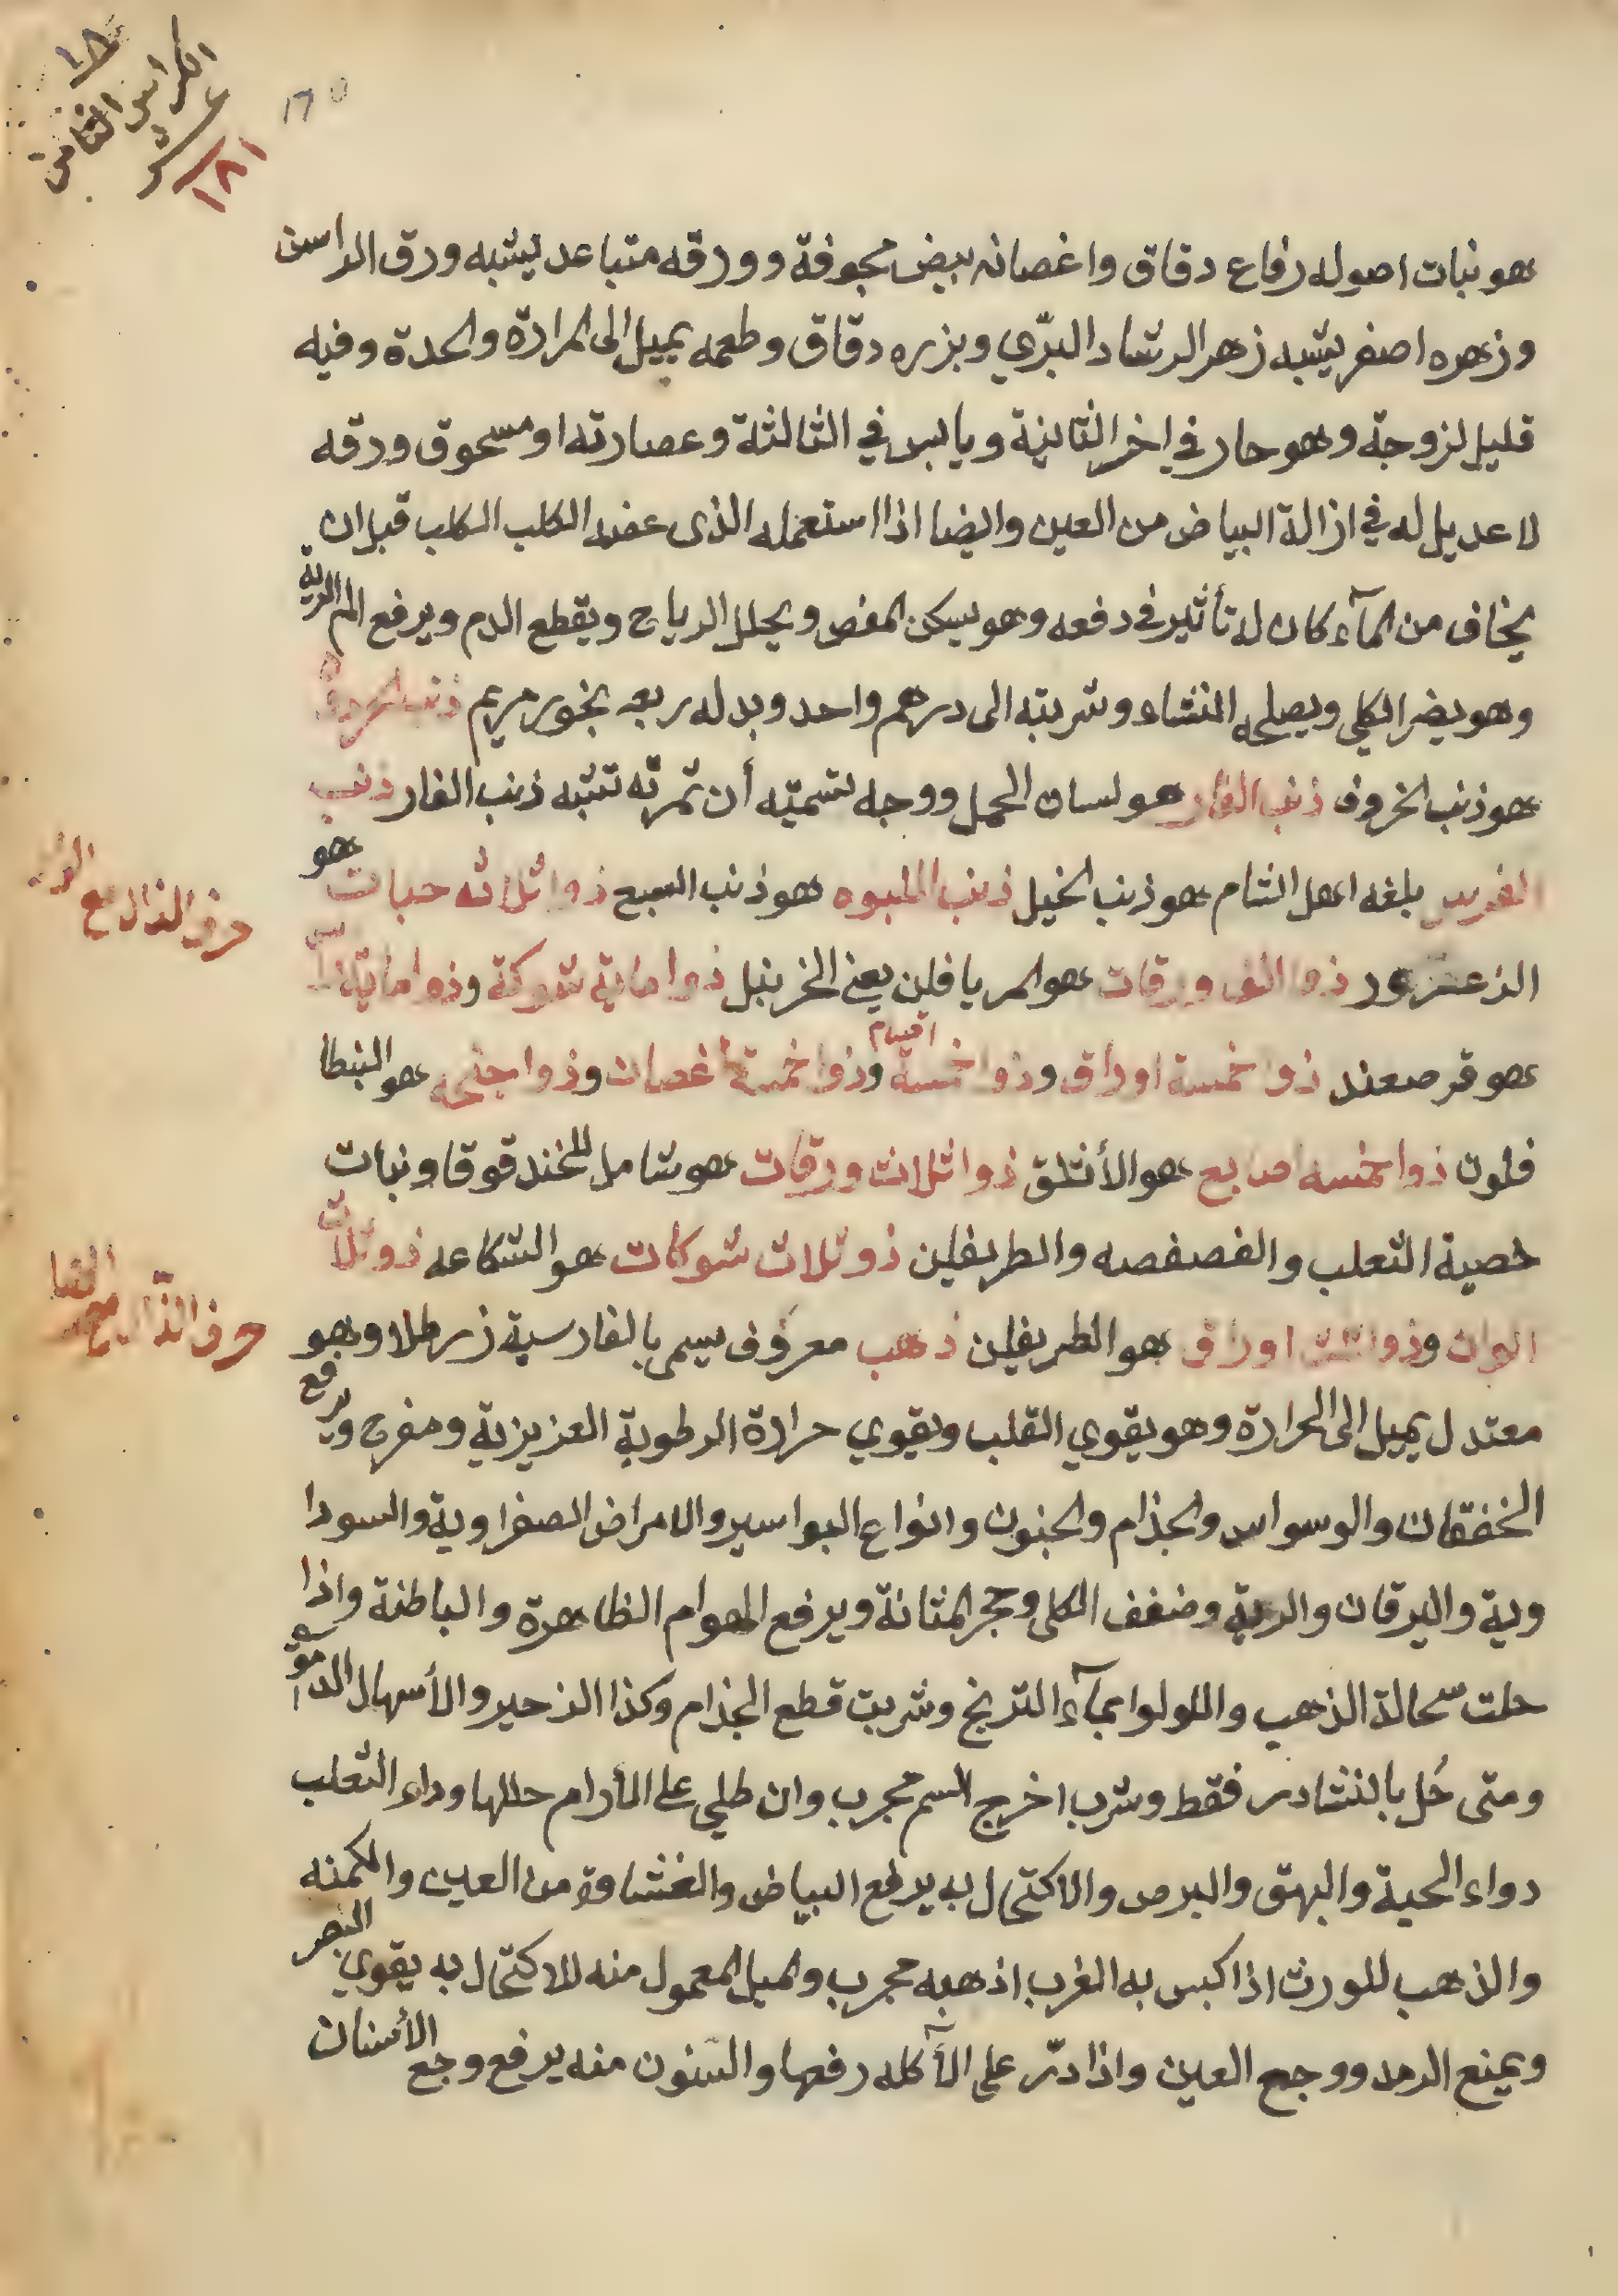 ١٨
الكراس الثامن
عشر
١٨١
١٦٥
هو نبات اصوله رفاع دقاق واغصانه بيض مجوفة وورقه متباعد يشبه ورق الراسن
وزهره اصفر يشبه زهر الرشاد البرّي وبزره دقاق وطعمه يميل الى المرارة والحدة وفيه
قليل لزوجة وهو حار في اخر الثانية ويابس في الثالثة وعصارته او مسحوق ورقه
لا عديل له في ازالة البياض من العين وايضا اذا استعمله الذى عضه الكلب الكلب قبل ان
يخاف من المآء كان له تأثير في دفعه وهو يسكن المغص ويحلل الرياح ويقطع الدم ويرفع الم الرية
وهو يضر الكلي ويصلحه النشاء وشربته الى درهم واحد وبدله ربعه بخور مريم ذنب
هو ذنب الخروف ذنب الفار هو لسان الحمل ووجه تسميته أن ثمرته تشبه ذنب الفار ذنب
الفرس بلغه اهل الشام هو ذنب الخيل ذنب اللبوه هو ذنب السبع ذوا ثلاثه حبات هو
الزعرور ذوا الف ورقات هو المريافلن يعني الخزنبل ذوا ماية شوكة وذوا ماية راس
هو قرصعند ذوا خمسة اوراق وذوا خمسة اقسام وذوا خمسة اغصان وذوا جنحه هو البنطا
فلون ذوا خمسه اصابع هو الأثلق ذوا ثلاث ورقات هو شامل للحندقوقا ونبات
خصية الثعلب والفصفصه والطريفلن ذو ثلاث شوكات هو الشكاعه ذو ثلاث
الوان وذوا ثلاث اوراق هو الطريفلن ذهب معروف يسمى بالفارسية زر طلا وهو
معتدل يميل الى الحرارة وهو يقوي القلب ويقوي حرارة الرطوبة العزيزية ومفرح ويرفع
الخفقان والوسواس والجذام والجنون وانواع البواسير والامراض الصفراوية والسودا
وية واليرقان والرية وضعف الكلى وحجر المثانة ويرفع الهوام الظاهرة والباطنة واذا
حلت سحالة الذهب واللولوا بمآء الترنج وشربت قطع الجذام وكذا الزحير والأسهال الدموي
ومتى حُل بالنشادر فقط وشرب اخرج السم مجرب وان طلي على المأرام حللها وداء الثعلب
دواء الحية والبهق والبرص والاكتحال به يرفع البياض والغشاوة من العين والكمنه
والذهب للورث اذا كبس به الغرب اذهبه مجرب والميل المعمول منه للاكتحال به يقوي البصر
ويمنع الرمد ووجع العين واذا درّ على الأكله رفعها والسنون منه يرفع وجع الأسنان
حرف الذال مع
حرف الذال مع